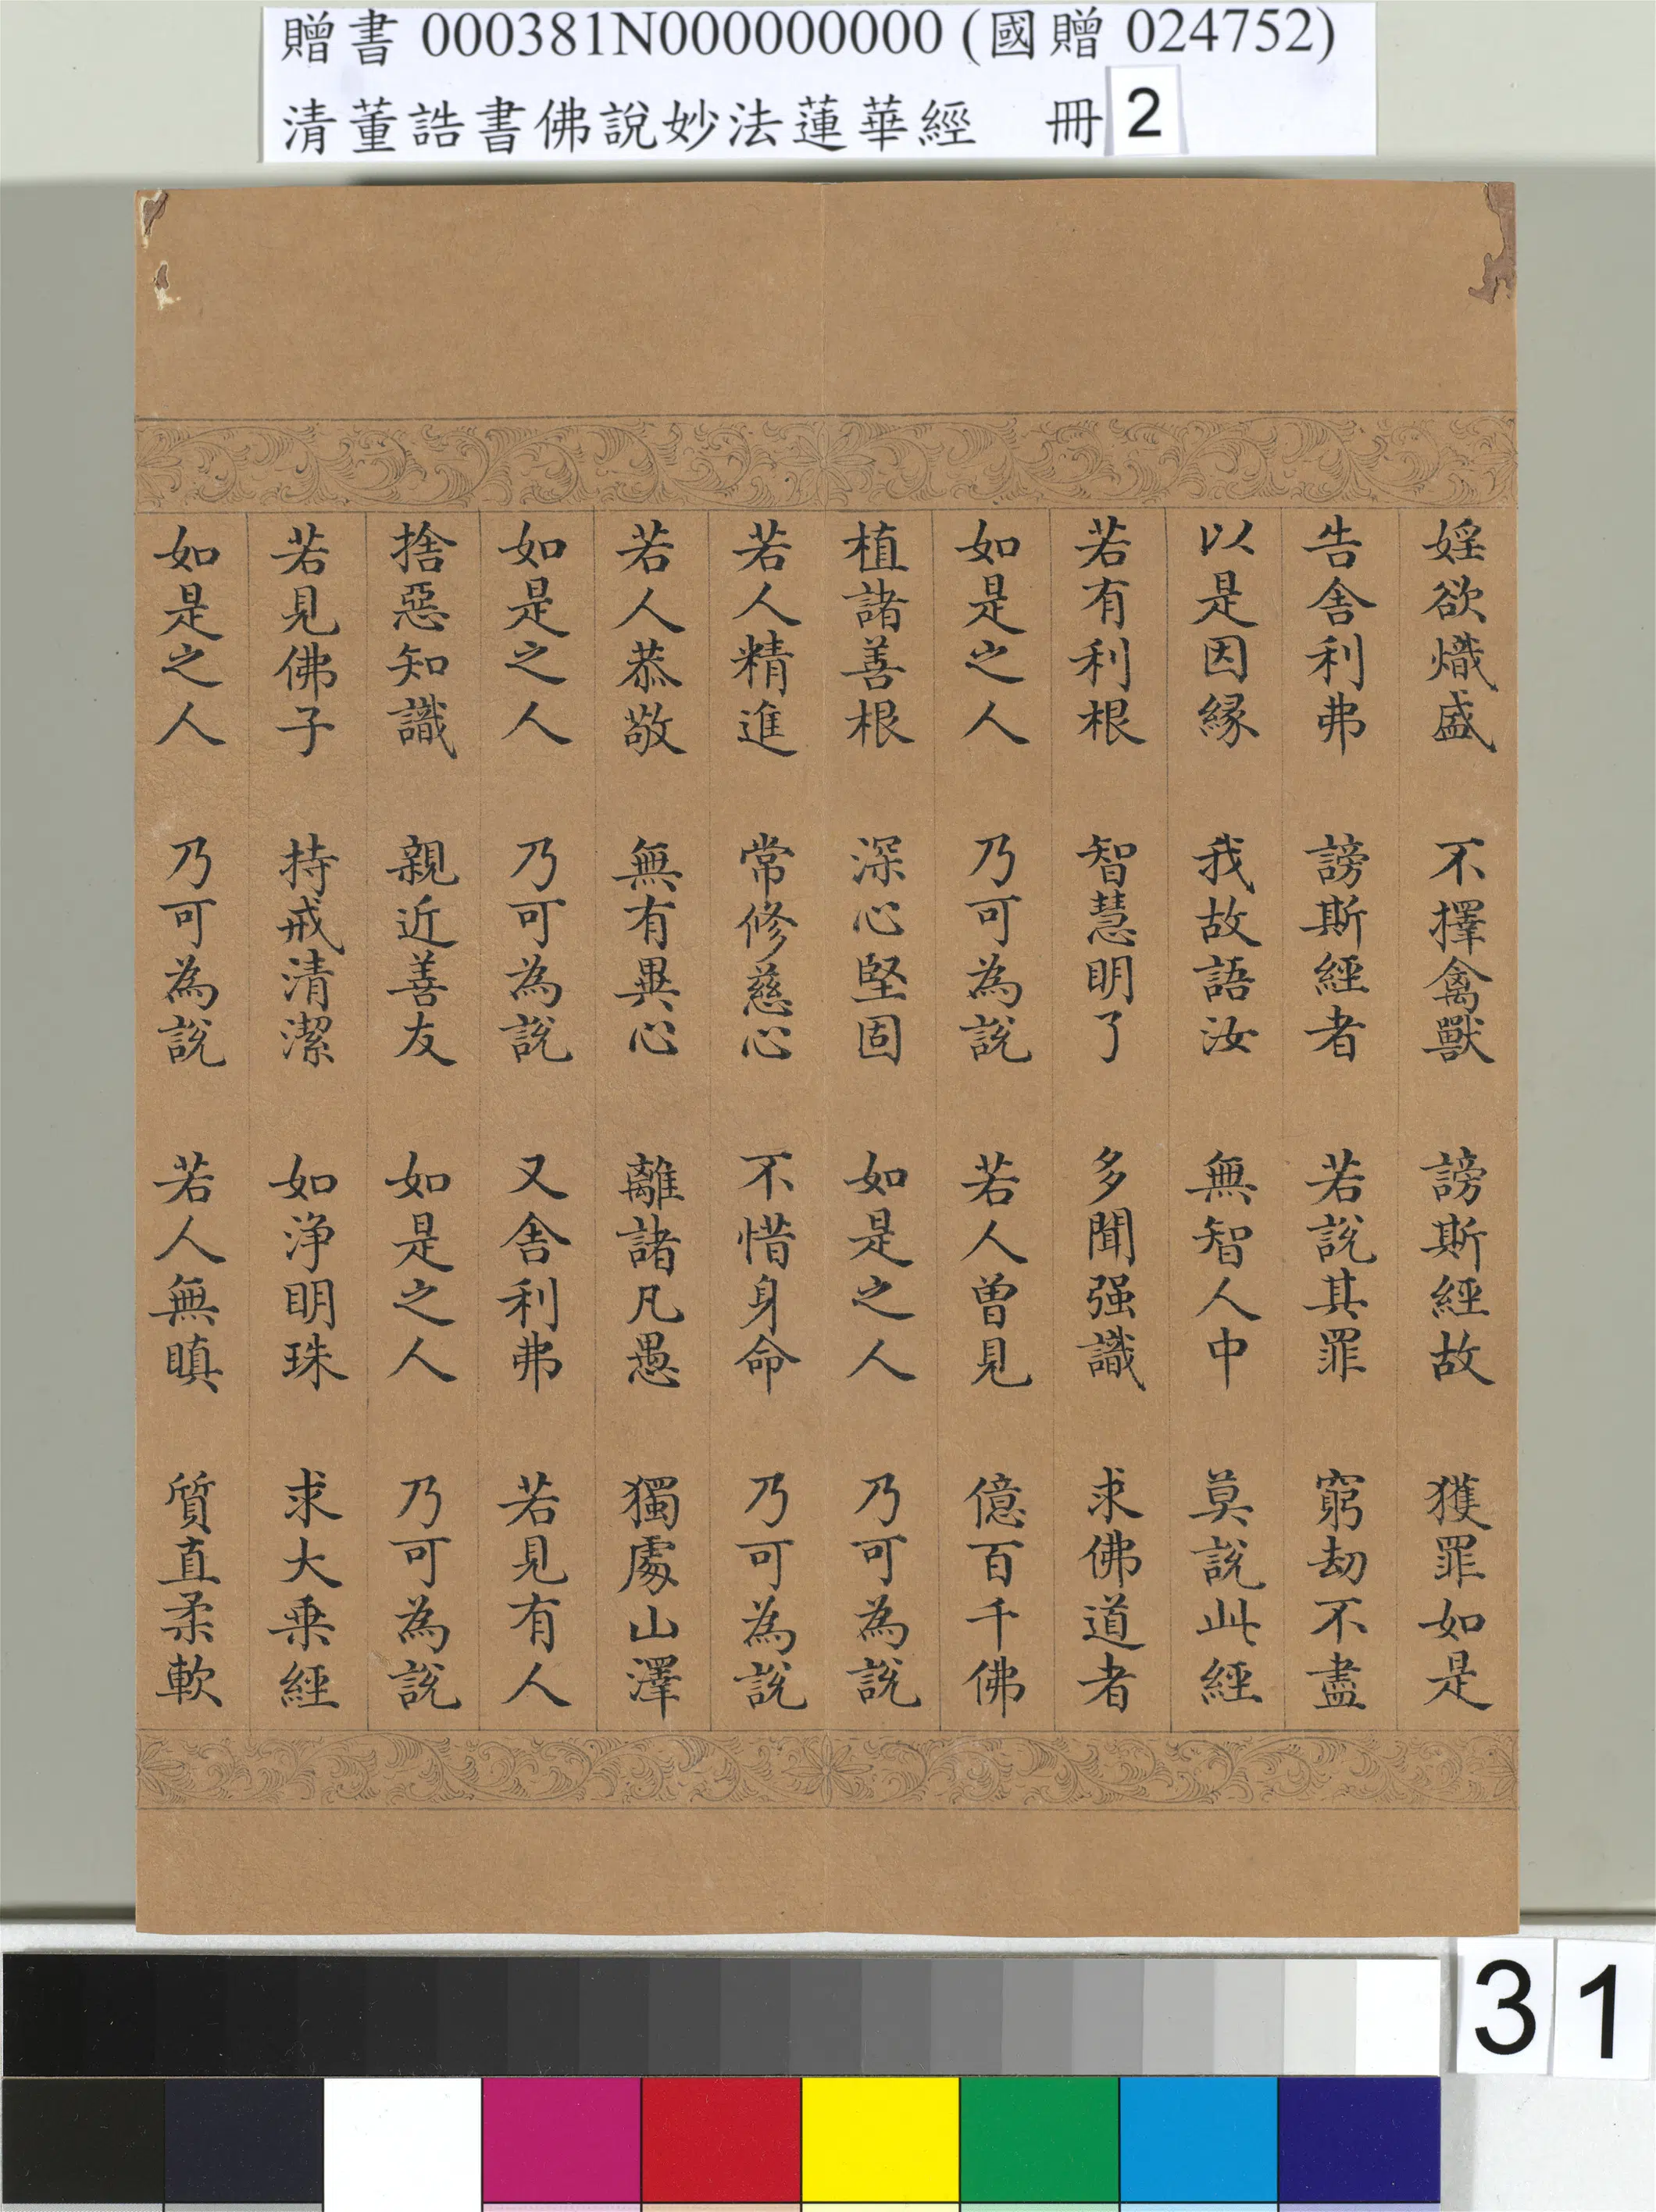 贈書 000381N000000000 (國贈 024752)
清董誥書佛說妙法蓮華經 冊 2
婬欲熾盛 不擇禽獸 謗斯經故 獲罪如是
告舍利弗 謗斯經者 若說其罪 窮劫不盡
以是因緣 我故語汝 無智人中 莫說此經
若有利根 智慧明了 多聞强識 求佛道者
如是之人 乃可為說 若人曾見 億百千佛
植諸善根 深心堅固 如是之人 乃可為說
若人精進 常修慈心 不惜身命 乃可為說
若人恭敬 無有異心 離諸凡愚 獨處山澤
如是之人 乃可為說 又舍利弗 若見有人
捨惡知識 親近善友 如是之人 乃可為說
若見佛子 持戒清潔 如淨明珠 求大乗經
如是之人 乃可為說 若人無瞋 質直柔軟
31